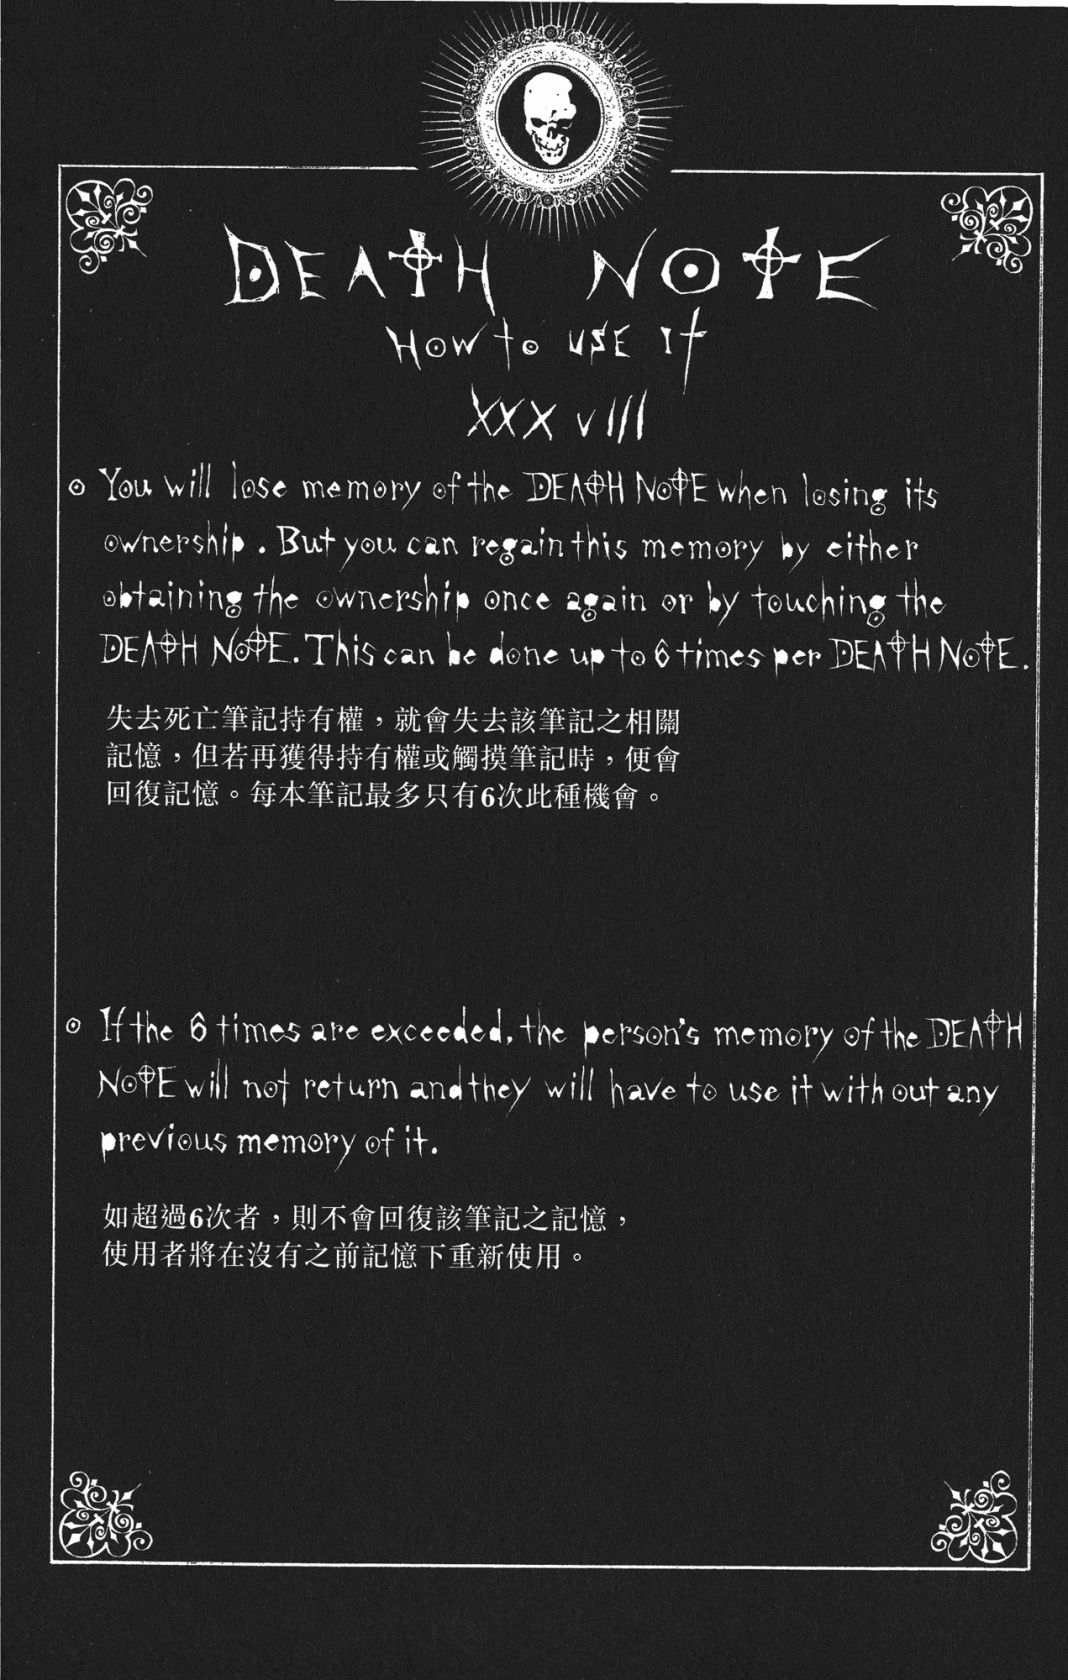 DEATH NOTE
HOW to USE It
XXXVIII
You will lose memory of the DEATH NOTE when losing its
ownership. But you can regain this memory by either
obtaining the ownership once again or by touching the
DEATH NOTE. This can be done up to 6 times per DEATH NOTE.
失去死亡筆記持有權，就會失去該筆記之相關
記憶，但若再獲得持有權或觸摸筆記時，便會
回復記憶。每本筆記最多只有6次此種機會。
If the 6 times are exceeded, the person's memory of the DEATH
NOTE will not return and they will have to use it with out any
previous memory of it.
如超過6次者，則不會回復該筆記之記憶，
使用者將在沒有之前記憶下重新使用。